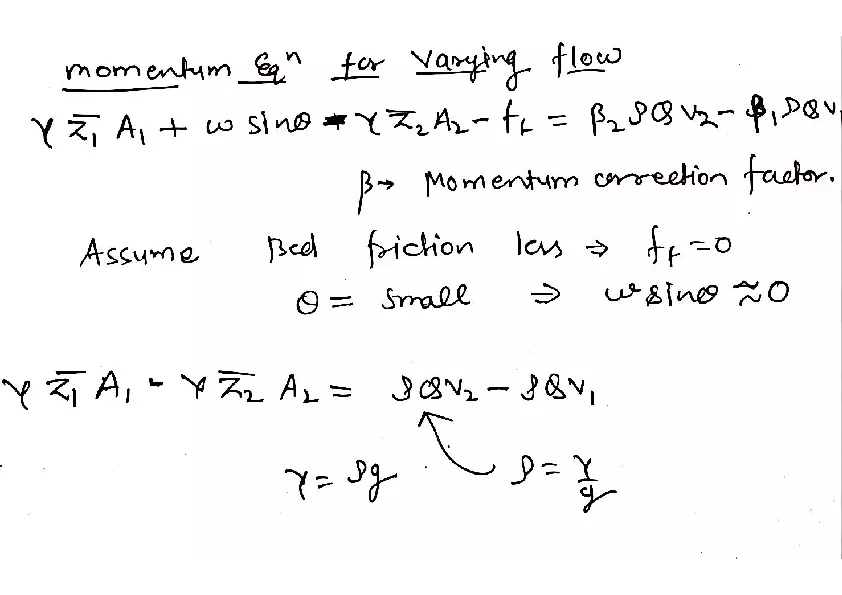 momentum Eqⁿ for Varying flow
γ z̄₁ A₁ + w sinθ - γ z̄₂ A₂ - fբ = β₂ ρQ V₂ - β₁ ρQ V₁
β → Momentum correction factor.
Assume Bed friction less ⇒ fբ = 0
θ = small ⇒ w sinθ ≈ 0
γ z̄₁ A₁ - γ z̄₂ A₂ = ρQV₂ - ρQV₁
γ = ρg ρ = γ/g